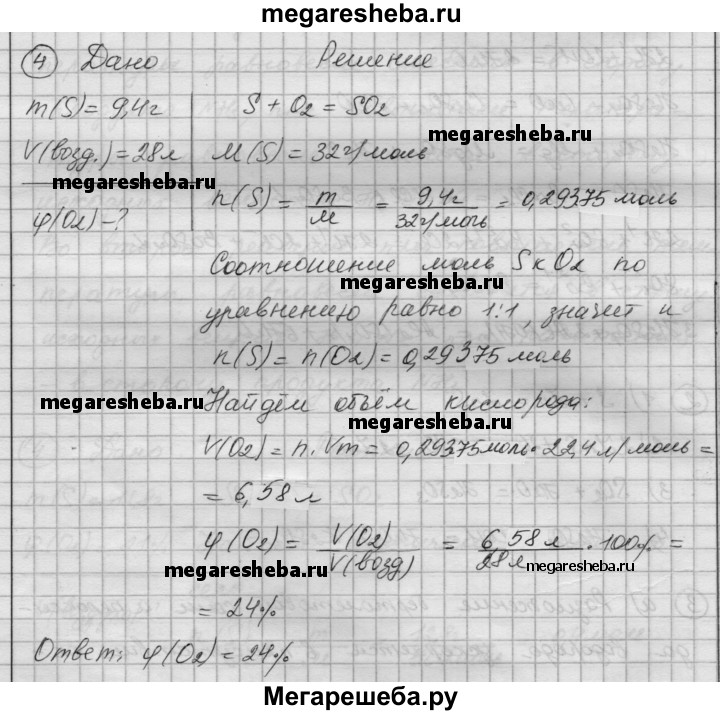 megaresheba.ru
4 Дано Решение
m(S)=9,4г S+O₂=SO₂
megaresheba.ru
V(возд.)=28л M(S)=32г/моль
megaresheba.ru
φ(O₂)-? n(S)=m/M=9,4г/32г/моль=0,29375моль
Соотношение моль S к O₂ по
megaresheba.ru
уравнению равно 1:1, значит и
n(S)=n(O₂)=0,29375моль
megaresheba.ru
Найдём объём кислорода:
V(O₂)=n·Vm=0,29375моль·22,4л/моль=
=6,58л
φ(O₂)=V(O₂)/V(возд)=6,58л/28л·100%=
megaresheba.ru megaresheba.ru
=24%
Ответ: φ(O₂)=24%
Мегарешеба.ру